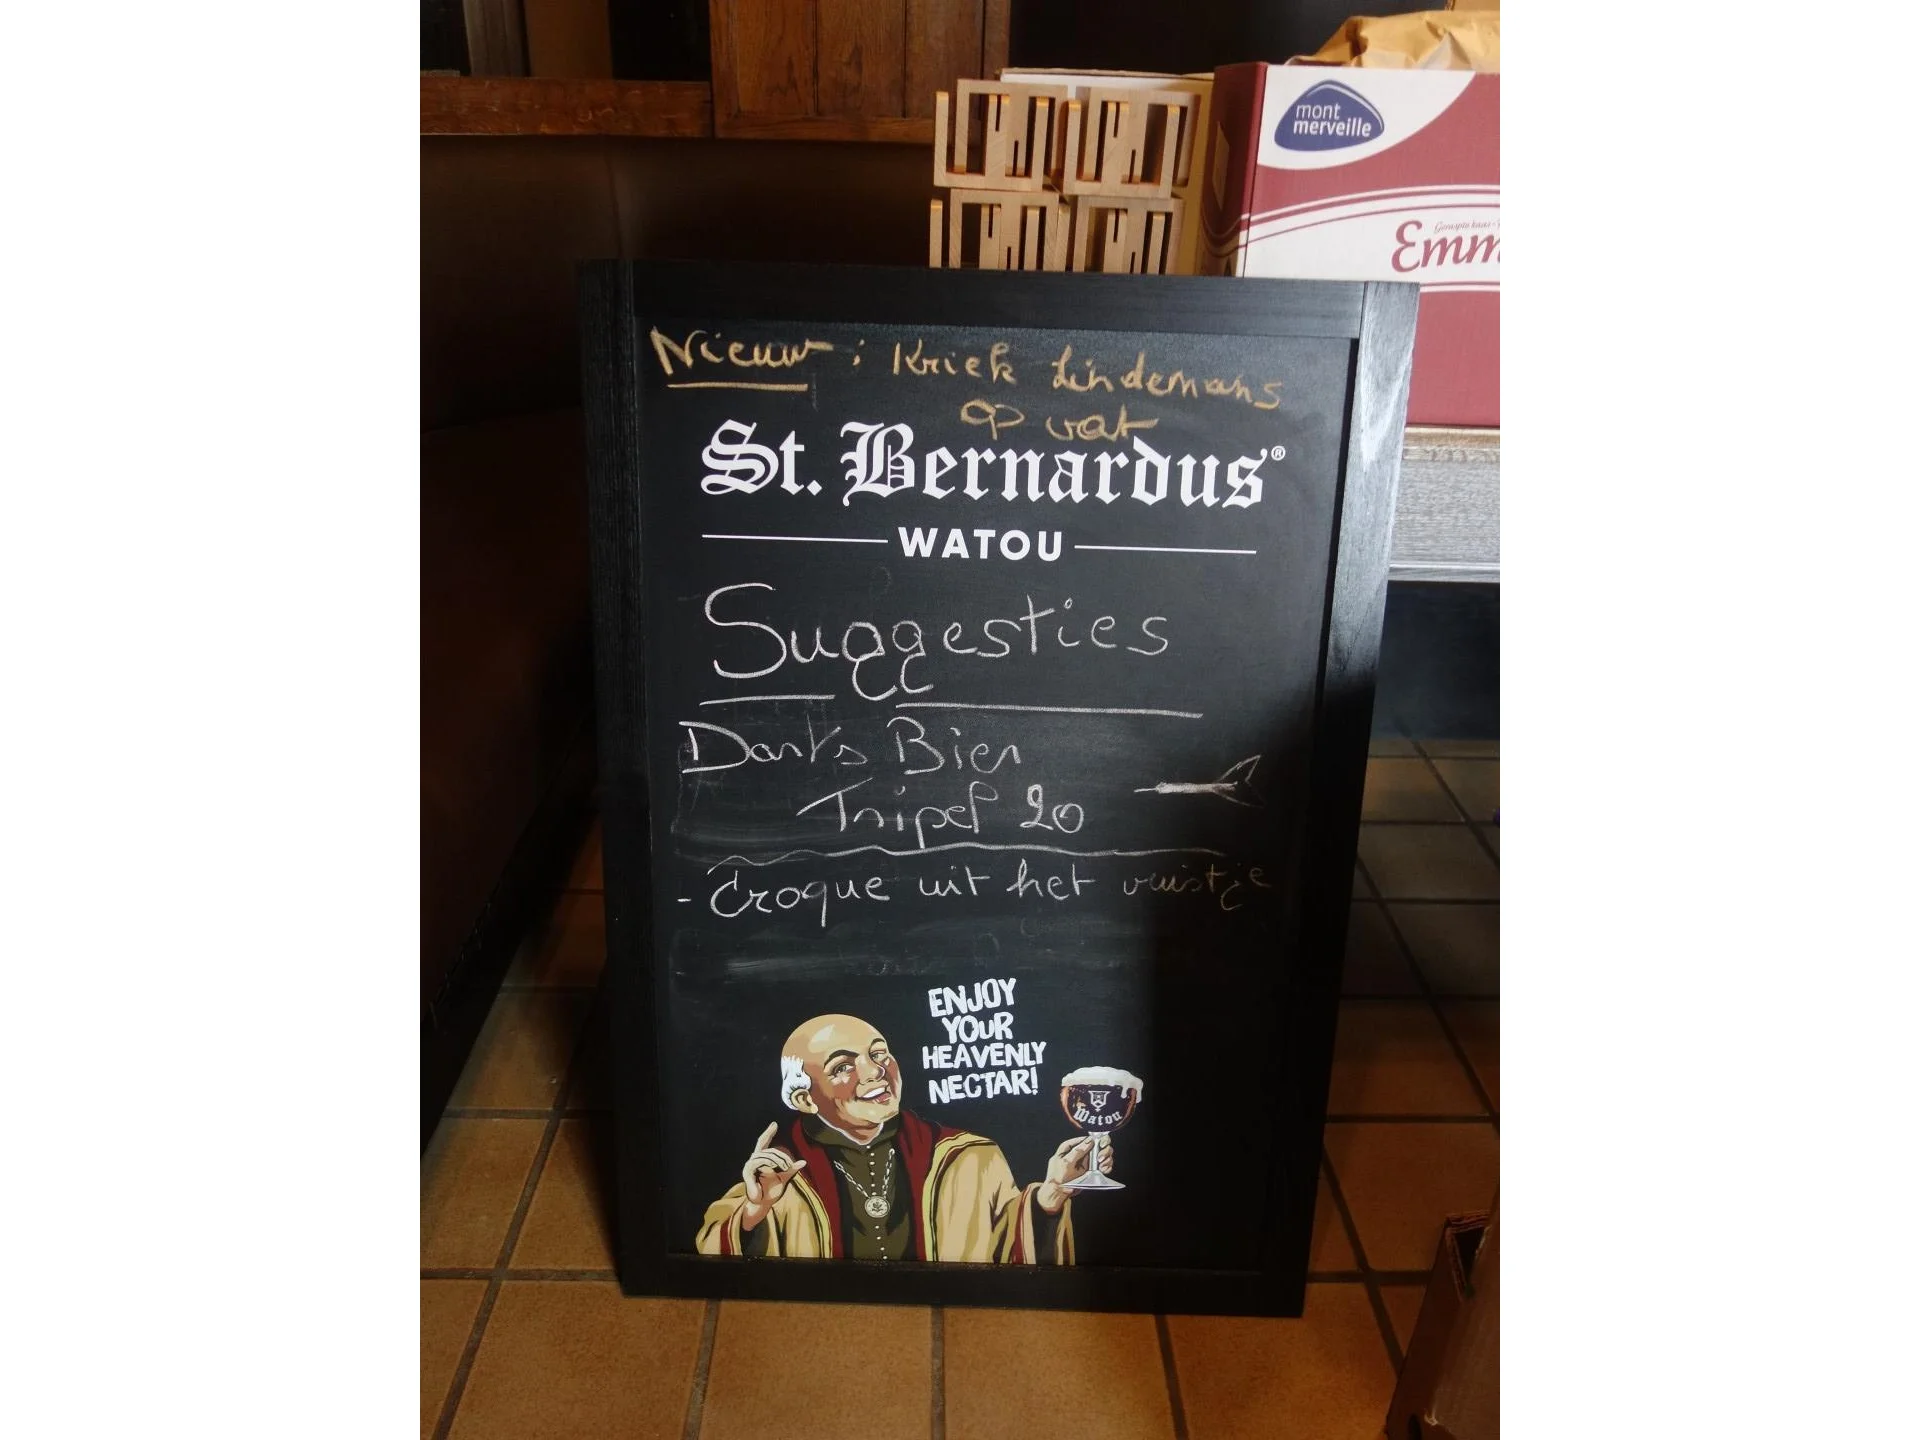 mont
merveille
Geraspte kaas
Emm
Nieuw : Kriek Lindemans
op vat
St. Bernardus®
WATOU
Suggesties
Darts Bier
Tripel 20
- Croque uit het vuistje
ENJOY
YOUR
HEAVENLY
NECTAR!
Watou